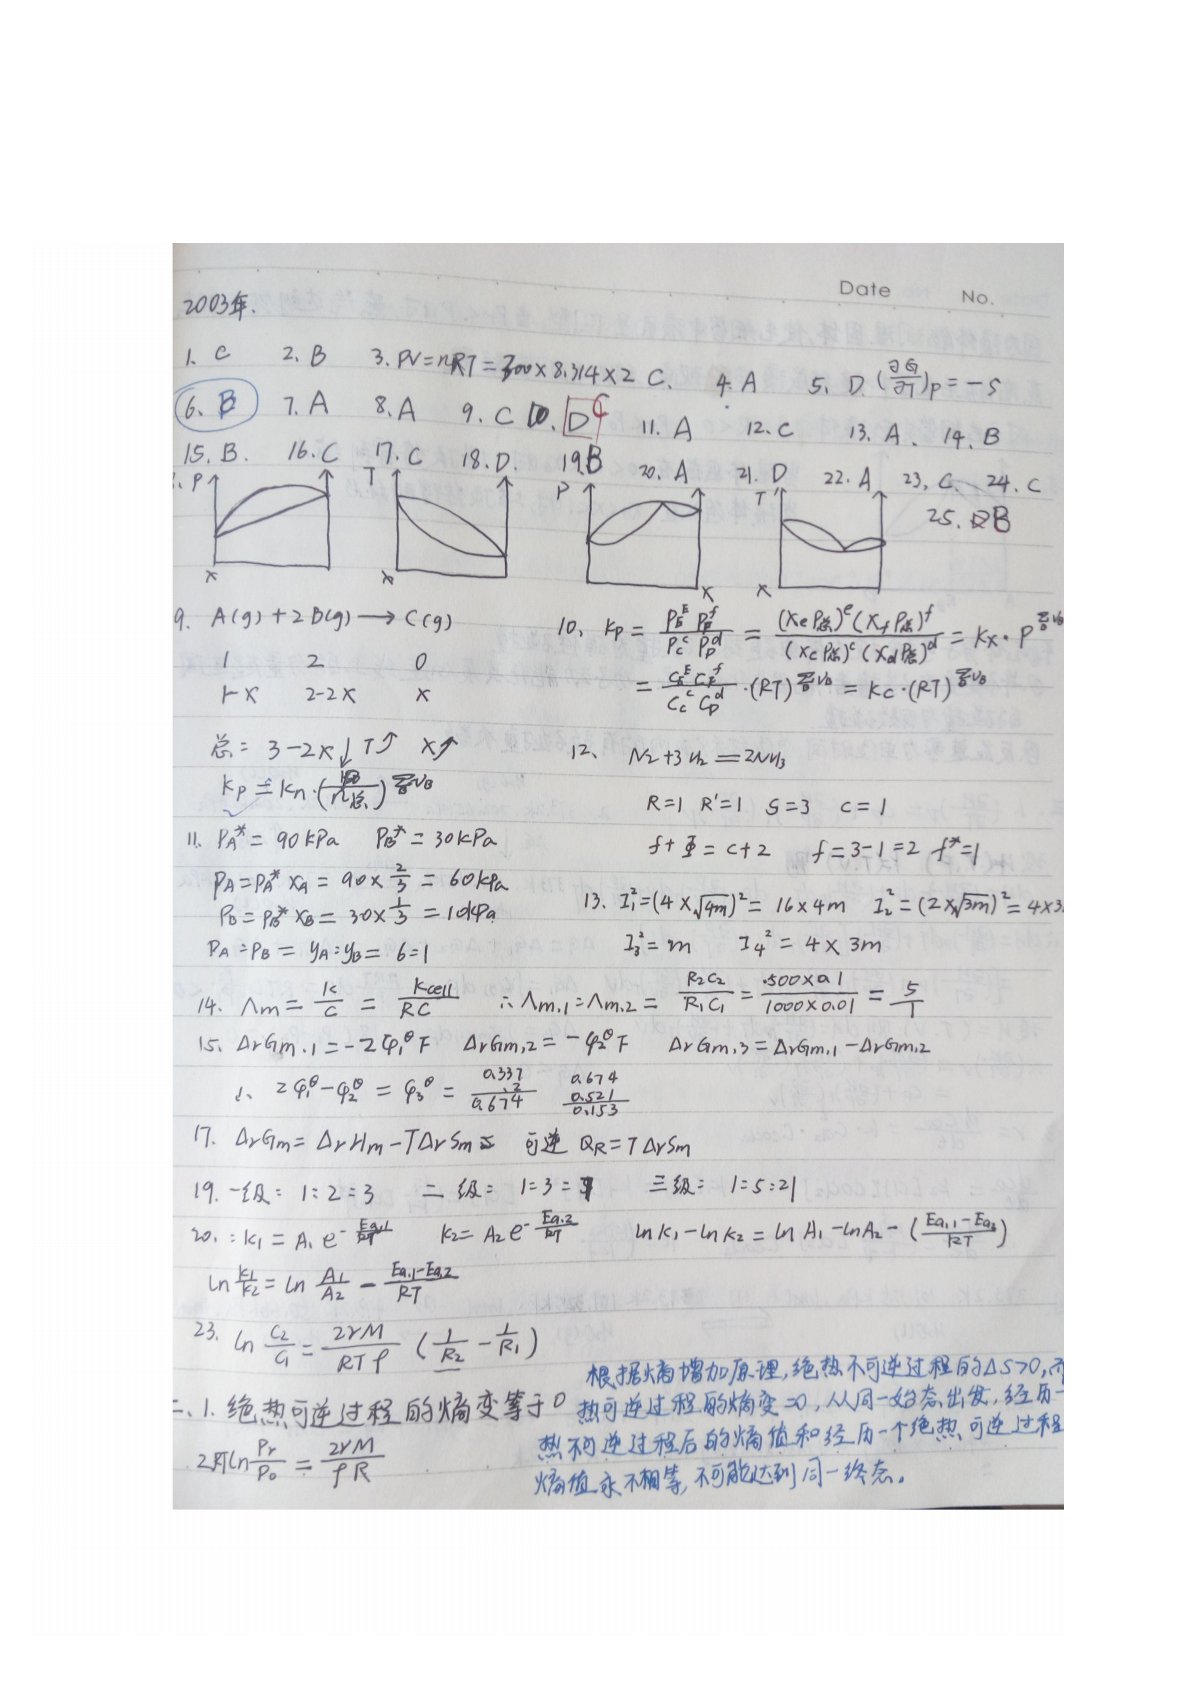 Date No.
2003年.
1. C 2. B 3. PV=nRT=300×8.314×2 C. 4. A 5. D (∂G/∂T)p=-S
6. B 7. A 8. A 9. C 10. D C 11. A 12. C 13. A. 14. B
15. B. 16. C 17. C 18. D. 19. B 20. A 21. D 22. A 23. C 24. C
25. B
P T P T
x x x x
9. A(g)+2B(g)→C(g)
1 2 0
1-x 2-2x x
总= 3-2x↓ T↑ x↑
Kp = Kn·( /n总)^ΣνB
10. Kp = (P_E^E P_F^f)/(P_C^c P_D^d) = ((x_e P总)^e (x_f P总)^f)/((x_c P总)^c (x_d P总)^d) = Kx·P^ΣνB
= (C_E^E C_F^f)/(C_C^c C_D^d)·(RT)^ΣνB = Kc·(RT)^ΣνB
12. N2+3H2=2NH3
R=1 R'=1 S=3 C=1
f+Φ=C+2 f=3-1=2 f*=1
11. PA*=90kPa PB*=30kPa
PA=PA* xA=90×2/3=60kPa
PB=PB* xB=30×1/3=10kPa
PA:PB=yA:yB=6:1
13. I1²=(4×√4m)²=16×4m I2²=(2×√3m)²=4×3
I3²=m I4²=4×3m
14. Λm=κ/C=Kcell/RC ∴Λm,1:Λm,2=R2C2/R1C1=500×0.1/1000×0.01=5/1
15. ΔrGm,1=-2φ1^θF ΔrGm,2=-φ2^θF ΔrGm,3=ΔrGm,1-ΔrGm,2
∴ 2φ1^θ-φ2^θ=φ3^θ= 0.337 ×2 0.674 0.674 0.521 0.153
17. ΔrGm=ΔrHm-TΔrSm 可逆 QR=TΔrSm
19. 一级: 1:2=3 二级: 1:3= 三级: 1:5:21
20. :k1=A1e^-Ea,1/RT k2=A2e^-Ea,2/RT lnk1-lnk2=lnA1-lnA2-(Ea,1-Ea,2/RT)
ln k1/k2=ln A1/A2-Ea,1-Ea,2/RT
23. ln C2/C1=2γM/RTρ (1/R2-1/R1)
二、1. 绝热可逆过程的熵变等于0
2. ln Pr/P0=2γM/ρR
根据熵增加原理,绝热不可逆过程的ΔS>0,而
热可逆过程的熵变=0,从同一始态出发,经历一
热不可逆过程后的熵值和经历一个绝热可逆过程
熵值永不相等,不可能达到同一终态。